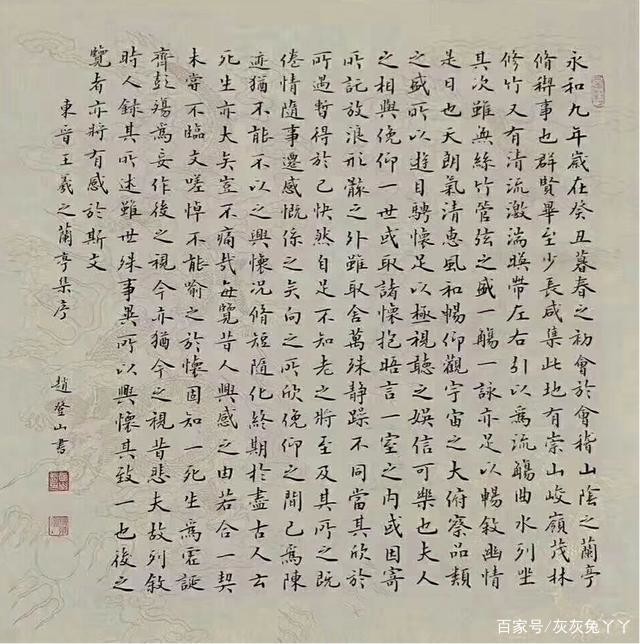 永和九年歲在癸丑暮春之初會於會稽山陰之蘭亭
脩稧事也群賢畢至少長咸集此地有崇山峻嶺茂林
修竹又有清流激湍暎帶左右引以為流觴曲水列坐
其次雖無絲竹管弦之盛一觴一詠亦足以暢敘幽情
是日也天朗氣清惠風和暢仰觀宇宙之大俯察品類
之盛所以遊目騁懷足以極視聽之娛信可樂也夫人
之相與俛仰一世或取諸懷抱晤言一室之內或因寄
所託放浪形骸之外雖取舍萬殊静躁不同當其欣於
所遇暫得於己快然自足不知老之將至及其所之既
倦情隨事遷感慨係之矣向之所欣俛仰之間已為陳
迹猶不能不以之興懷况脩短隨化終期於盡古人云
死生亦大矣豈不痛哉每覽昔人興感之由若合一契
未嘗不臨文嗟悼不能喻之於懷固知一死生為虛誕
齊彭殤為妄作後之視今亦猶今之視昔悲夫故列敘
時人錄其所述雖世殊事異所以興懷其致一也後之
覽者亦將有感於斯文
東晉王羲之蘭亭集序
趙登山書
百家号/灰灰兔丫丫